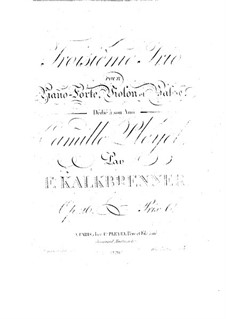 Troisième Trio
POUR
Piano-Forte, Violon et Basse
Dédié à son Ami
Camille Pleyel
Par
F. KALKBRENNER
Op. 26. Prix 6
A PARIS chez I. PLEYEL